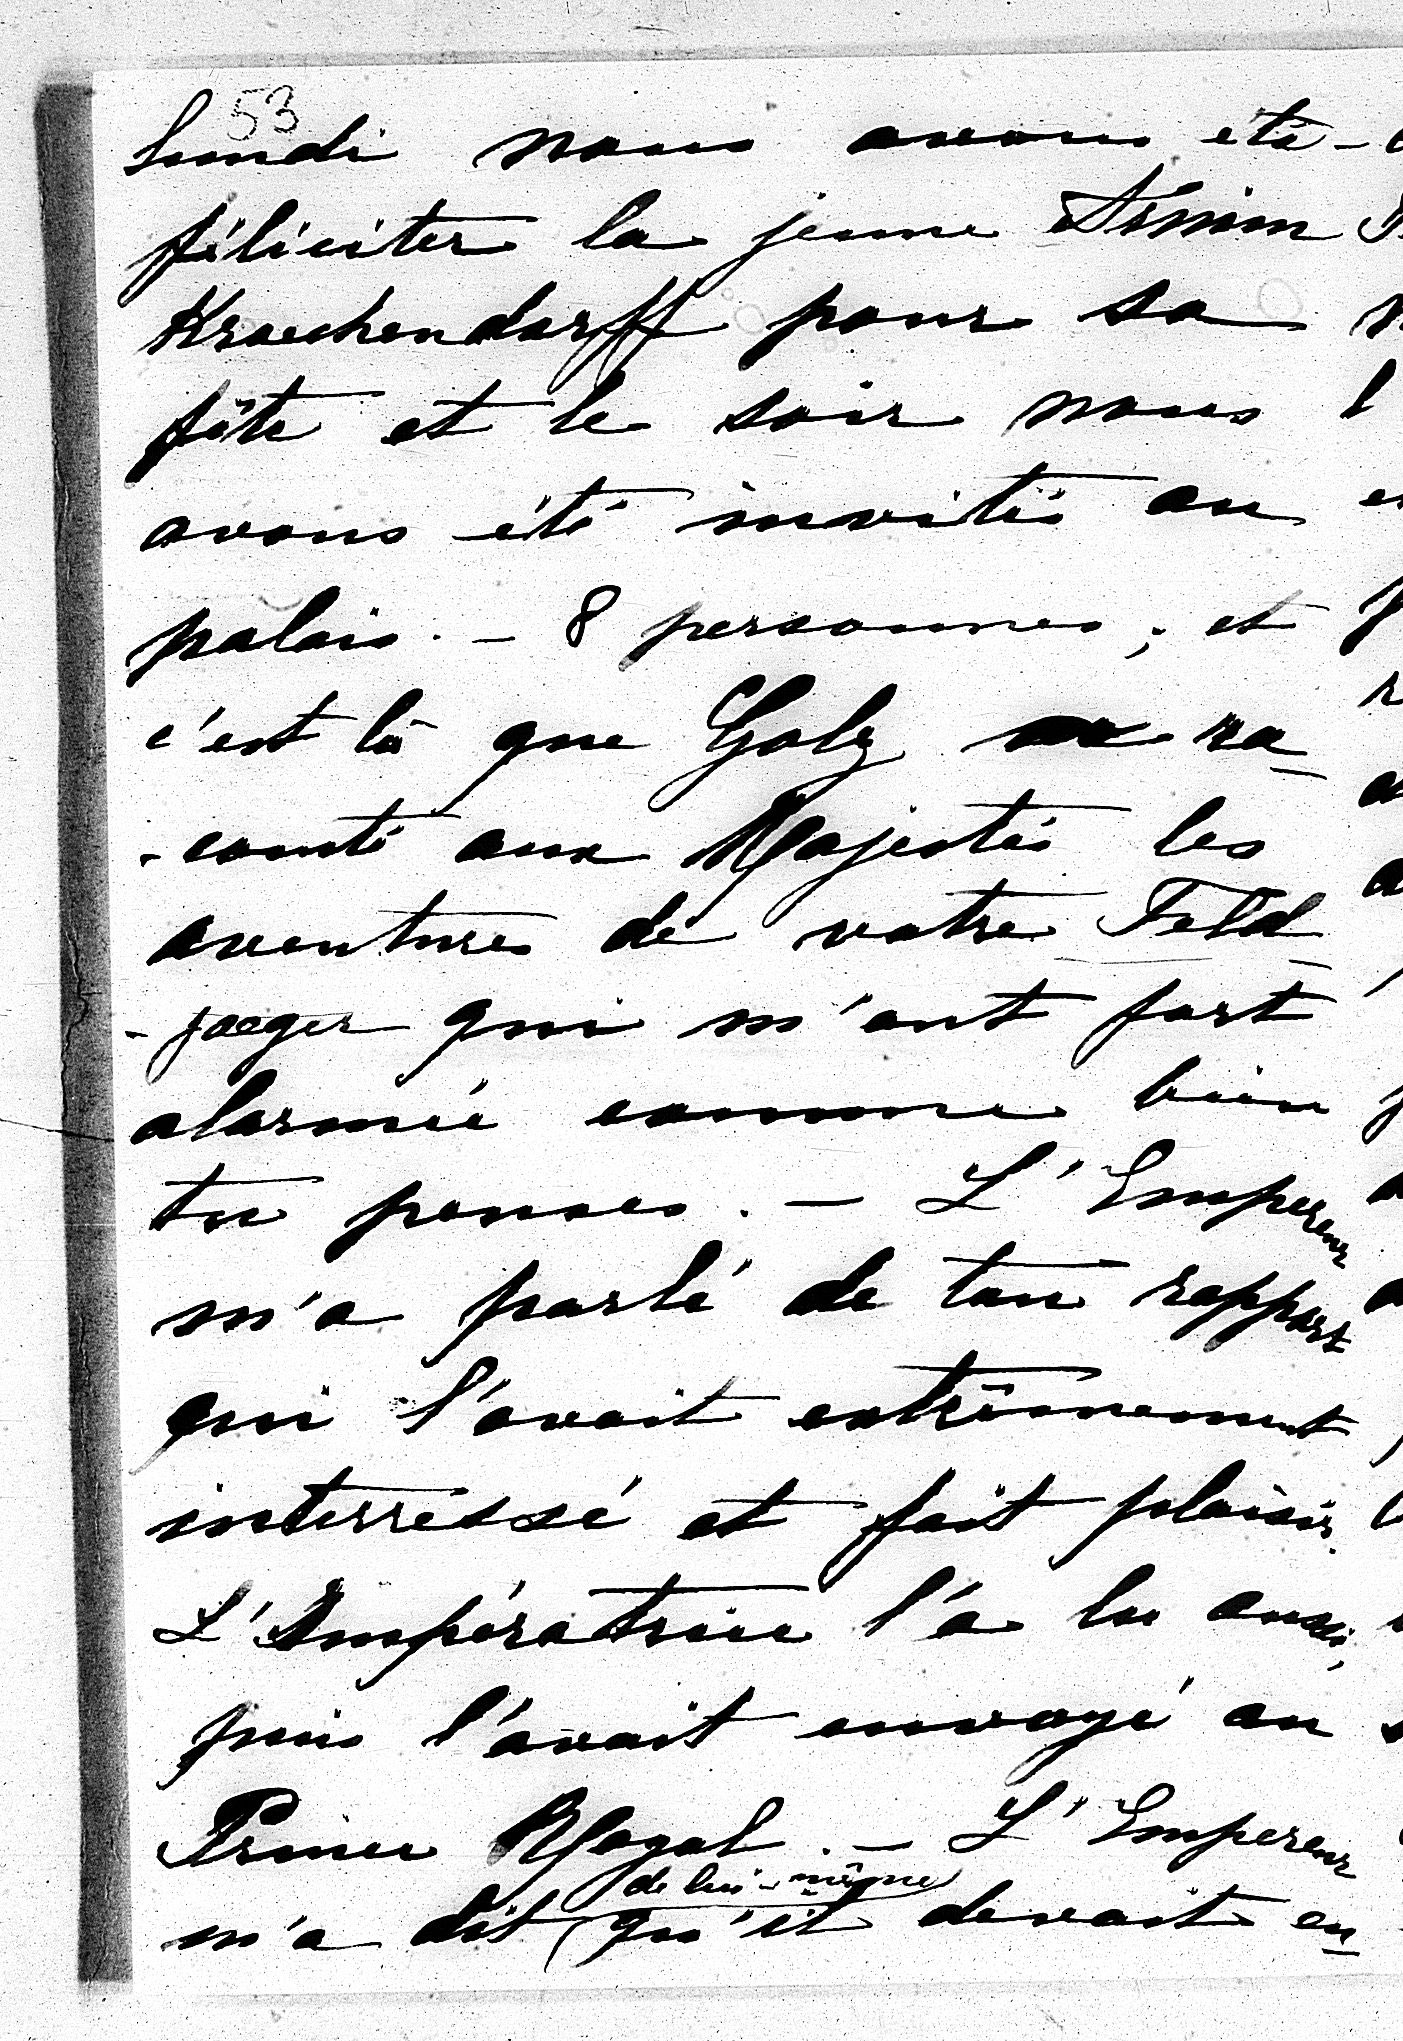 53
Lundi nous avons été
féliciter la jeune Arnim
Kroechendorff pour sa
fête et le soir nous
avons été invités au
palais. – 8 personnes; et
c'est là que Golz a ra-
-conté aux Majestés les
aventures de votre Feld-
-jaeger qui m'ont fort
alarmée comme bien
tu penses. – L'Empereur
m'a parlé de ton rapport
qui l'avait extrêmement
interressé et fait plaisir.
L'Impératrice l'a lu aussi,
puis l'avait envoyé au
Prince Royal. – L'Empereur
de lui-même
m'a dit (qu'il devait en-